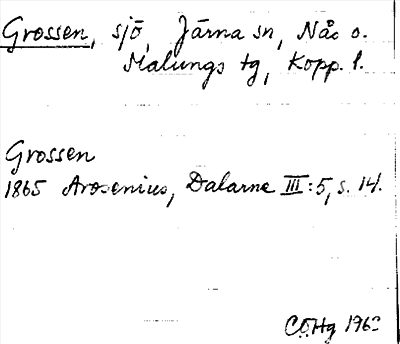 Grossen, sjö, Järna sn, Nås o.
Malungs tg, Kopp. l.
Grossen
1865 Arosenius, Dalarne III:5, s. 14.
CÖHg